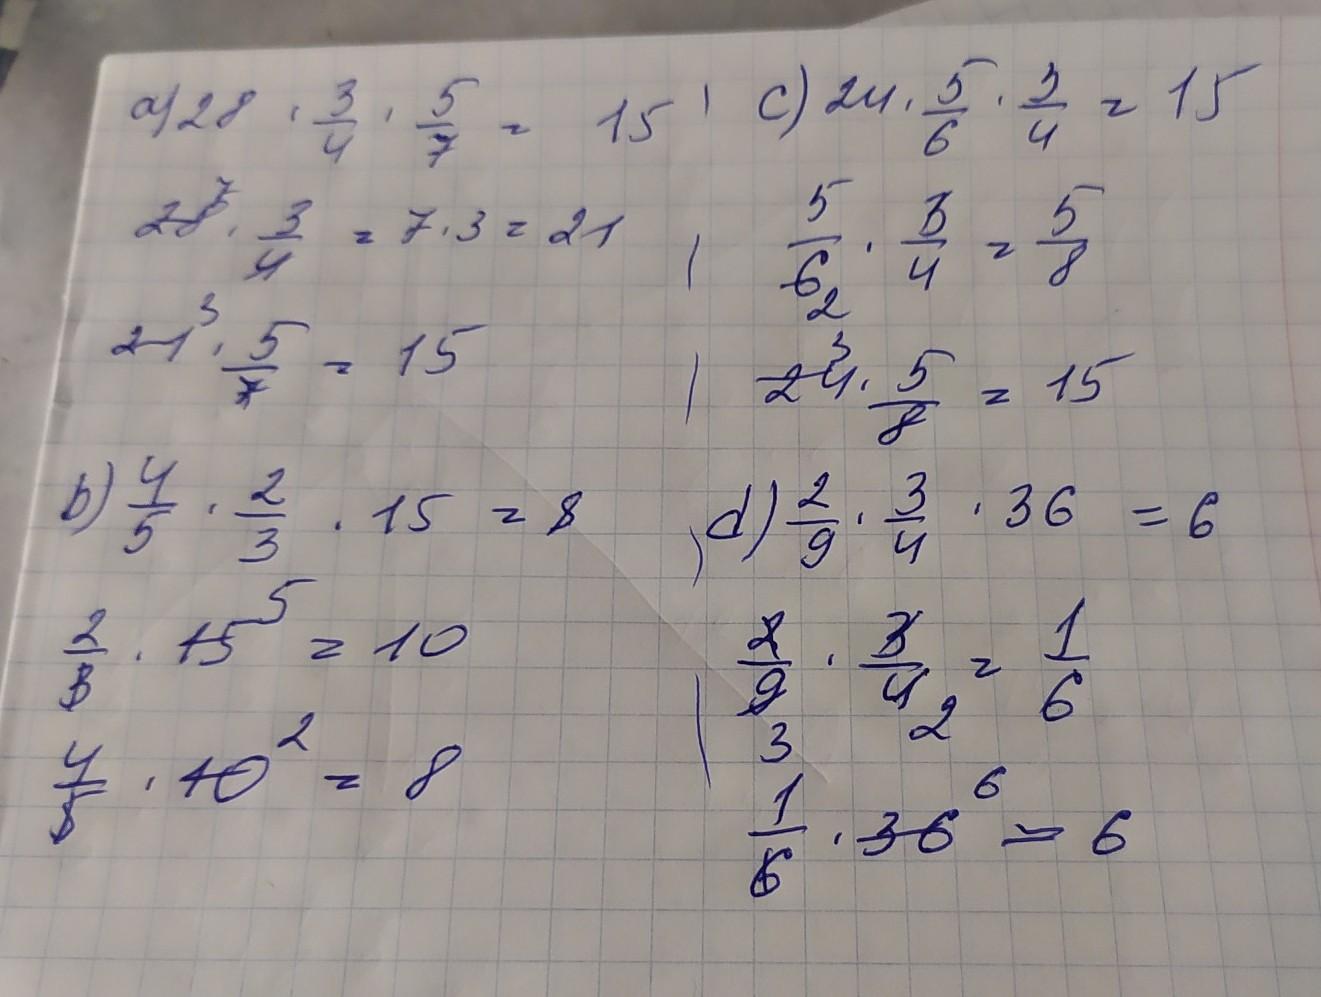 a) 28 · 3/4 · 5/7 = 15
28 7 · 3/4 = 7 · 3 = 21
21 3 · 5/7 = 15
b) 4/5 · 2/3 · 15 = 8
2/3 · 15 5 = 10
4/5 · 10 2 = 8
c) 24 · 5/6 · 3/4 = 15
5/6 2 · 3/4 = 5/8
24 3 · 5/8 = 15
d) 2/9 · 3/4 · 36 = 6
2/9 3 · 3/4 2 = 1/6
1/6 · 36 6 = 6